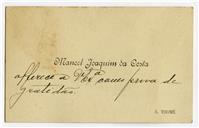 Manoel Joaquim da Costa
offerece a V. Ex.ª como prova de
gratidão.
S. THOMÉ